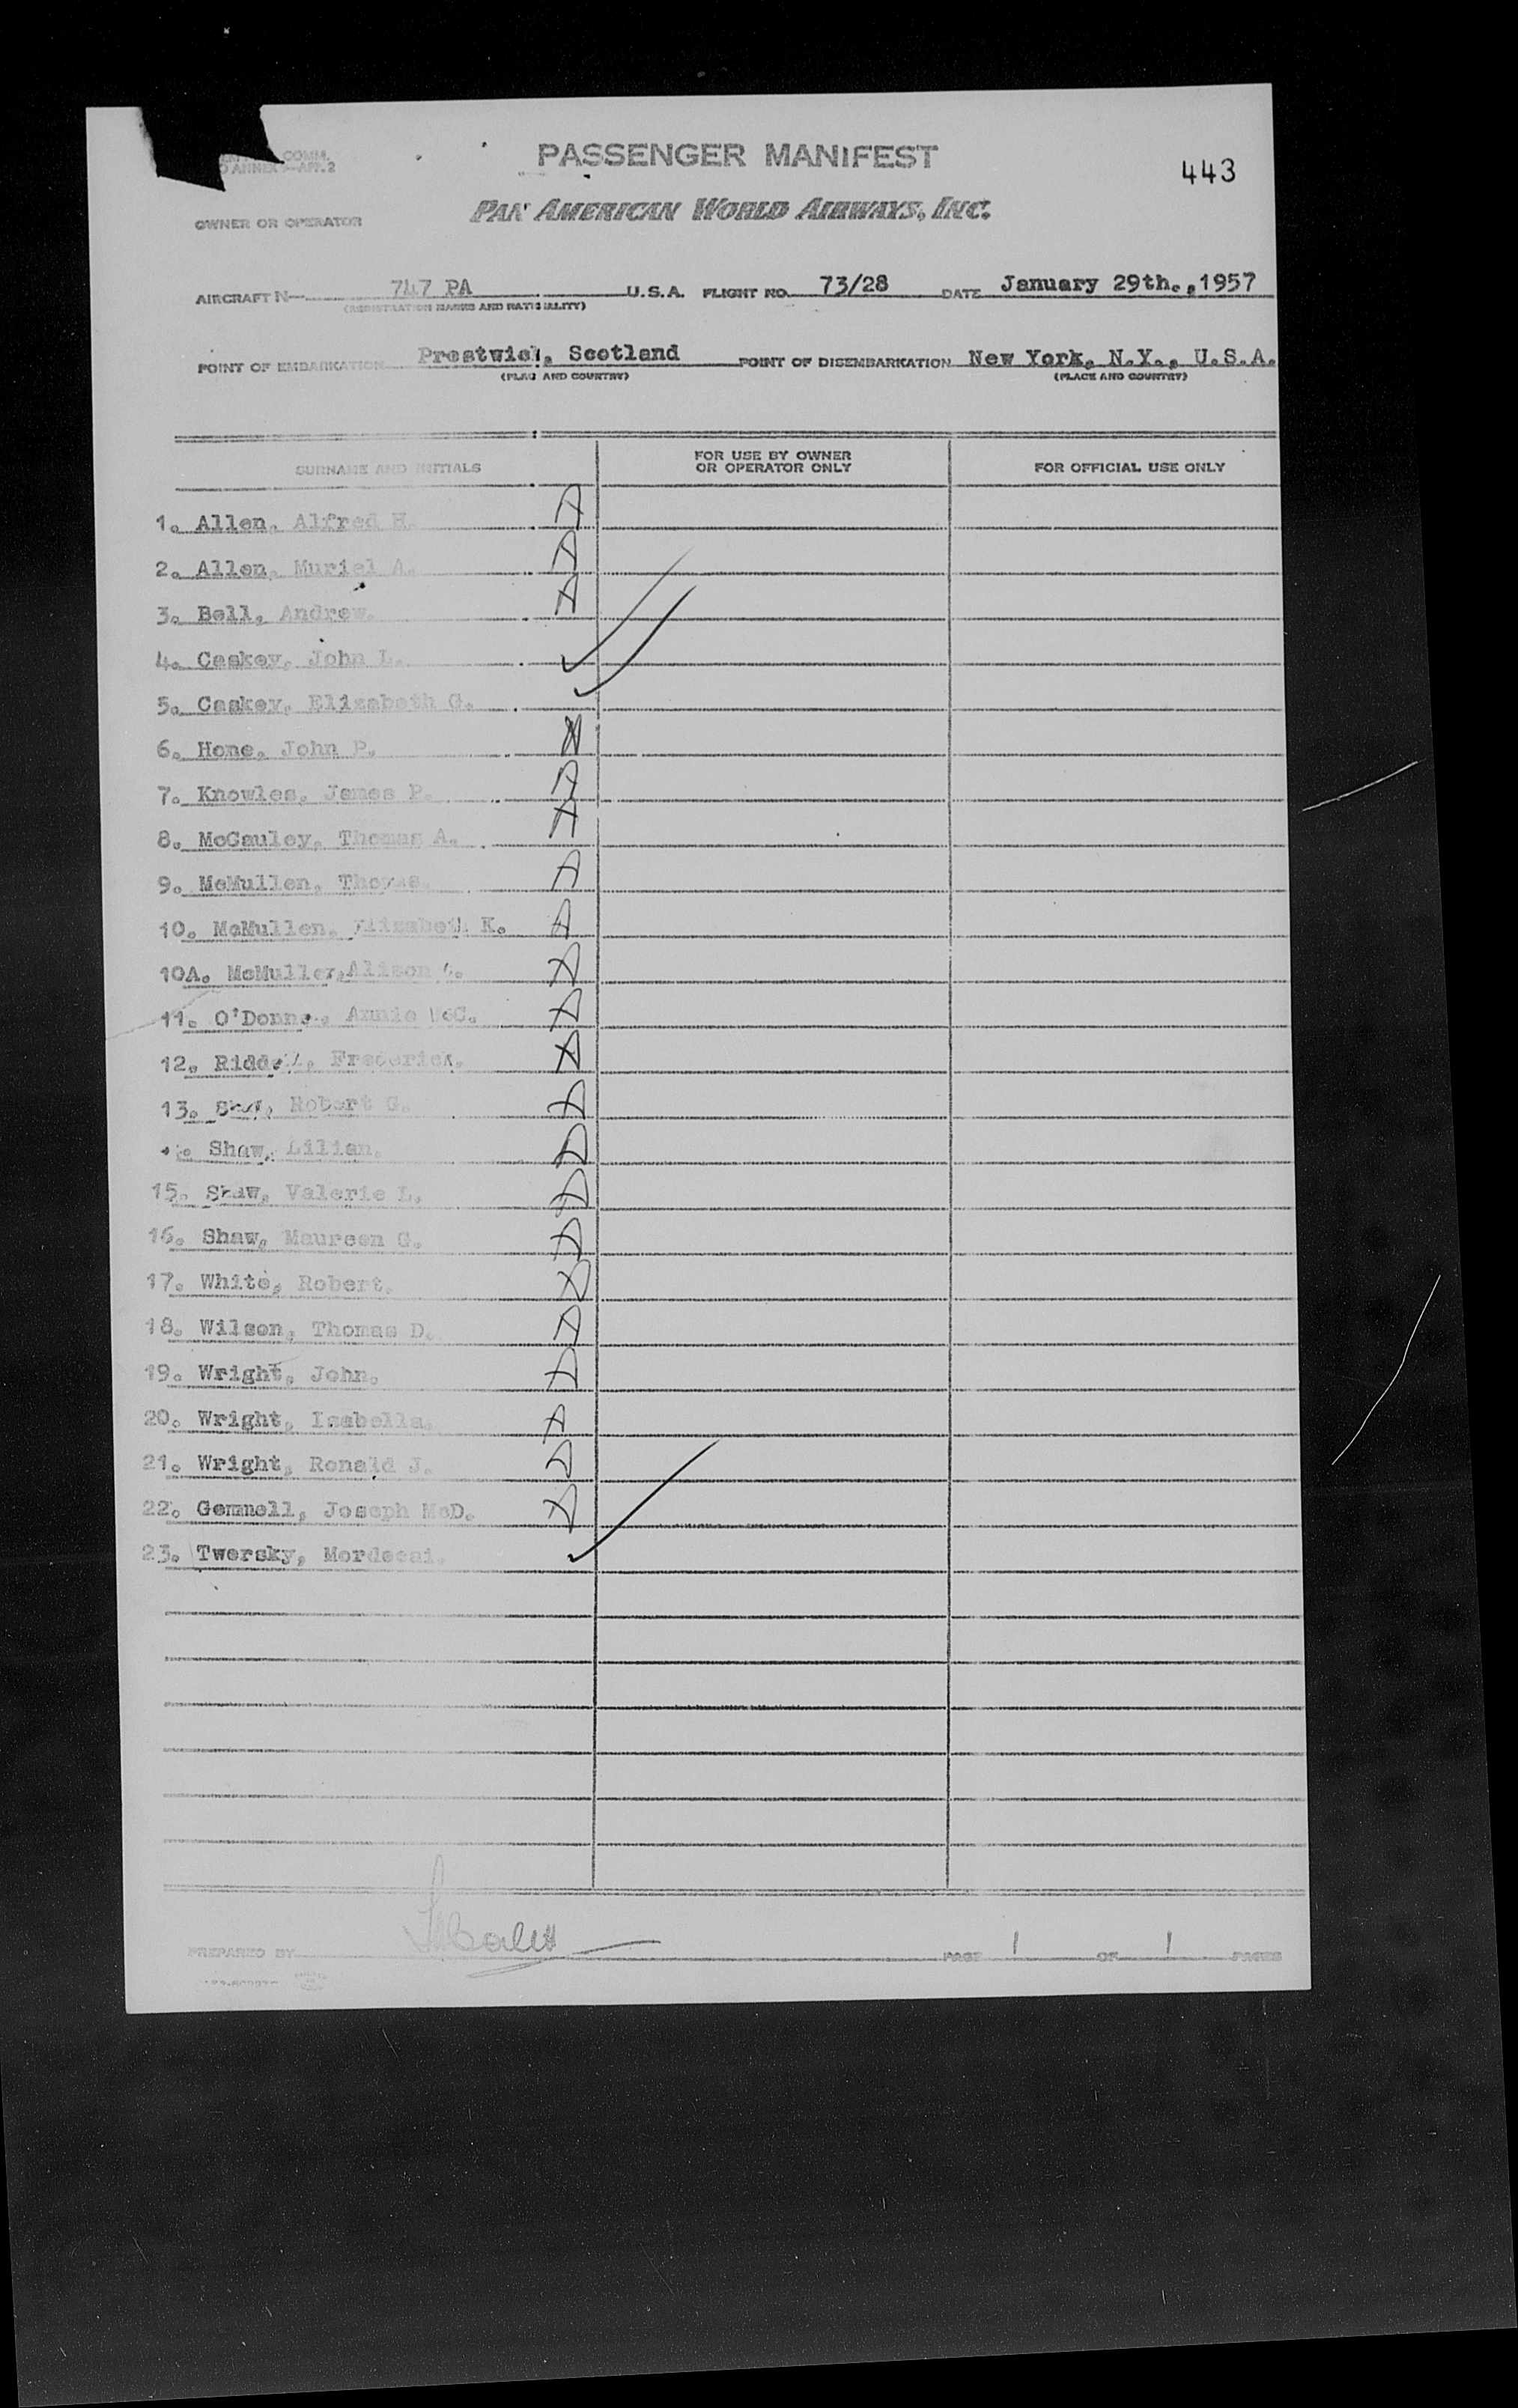 COMM.
ANNEX —APP. 2
PASSENGER MANIFEST
443
PAN AMERICAN WORLD AIRWAYS, INC.
OWNER OR OPERATOR
AIRCRAFT N— 747 PA U.S.A. FLIGHT NO. 73/28 DATE January 29th.,1957
(REGISTRATION MARKS AND NATIONALITY)
POINT OF EMBARKATION Prestwick, Scotland POINT OF DISEMBARKATION New York, N.Y., U.S.A.
(PLACE AND COUNTRY) (PLACE AND COUNTRY)
SURNAME AND INITIALS FOR USE BY OWNER OR OPERATOR ONLY FOR OFFICIAL USE ONLY
1. Allen, Alfred H. A
2. Allen, Muriel A. A
3. Bell, Andrew. A
4. Caskey, John L. ✓
5. Caskey, Elizabeth G. ✓
6. Hone, John P.
7. Knowles, James P. A
8. McCauley, Thomas A. A
9. McMullen, Thomas. A
10. McMullen, Elizabeth K. A
10A. McMullen, Alison A
11. O'Donn Annie McC. A
12. Riddell, Frederick. A
13. Shaw, Robert G. A
Shaw, Lilian. A
15. Shaw, Valerie L. A
16. Shaw, Maureen G. A
17. White, Robert. A
18. Wilson, Thomas D. A
19. Wright, John. A
20. Wright, Isabella. A
21. Wright, Ronald J. A
22. Gemmell, Joseph McD. A
23. Twersky, Mordecai. ✓
PREPARED BY PAGE 1 OF 1 PAGES